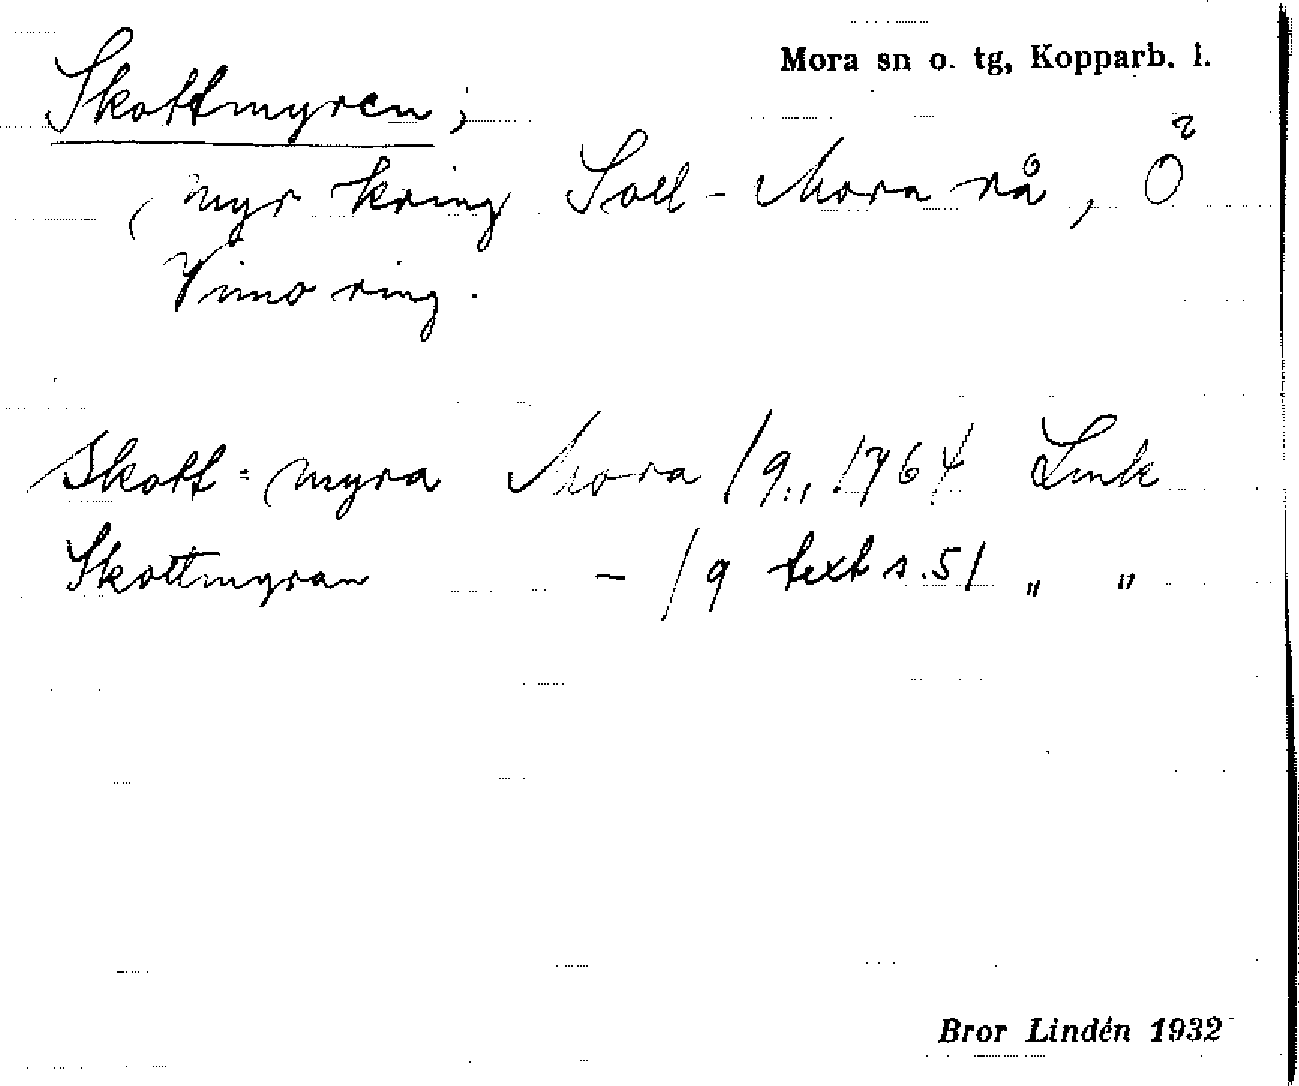 Mora sn o. tg, Kopparb. l.
Skottmyren;
myr kring Soll-Mora rå, Ö
Vimo ring.
Skott=myra Mora /9., 1764 Lmk
Skottmyran – /9 text s. 51 „ „
Bror Lindén 1932